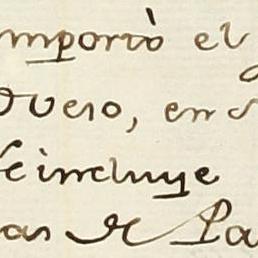 importò el
Duero, en
se incluye
as de Pa